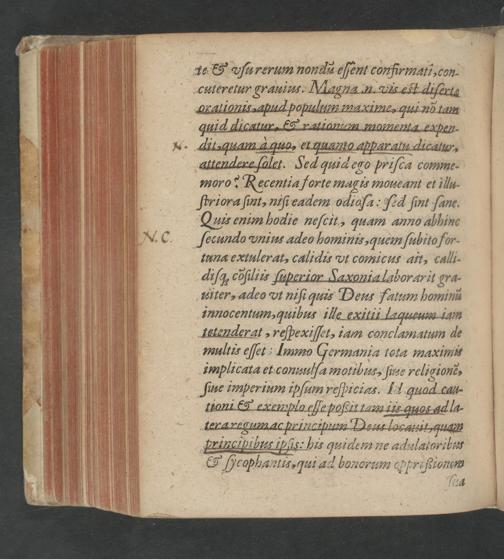 te & vsu rerum nondū essent confirmati, con-
cuteretur grauius. Magna .n. vis est diserte
orationis, apud populum maxime, qui nō tam
quid dicatur, & rationum momenta expen-
N. dit, quam à quo, et quanto apparatu dicatur,
attendere solet. Sed quid ego prisca comme-
moro? Recentia forte magis moueant et illu-
striora sint, nisi eadem odiosa: sed sint sane.
Quis enim hodie nescit, quam anno abhinc
N.C. secundo vnius adeo hominis, quem subito for-
tuna extulerat, calidis vt comicus ait, calli-
disq; cōsiliis superior Saxonia laborarit gra-
uiter, adeo vt nisi quis Deus fatum hominū
innocentum, quibus ille exitii laqueum iam
tetenderat, respexisset, iam conclamatum de
multis esset: Immo Germania tota maximis
implicata et conuulsa motibus, siue religionē,
siue imperium ipsum respicias. Id quod cau-
tioni & exemplo esse possit tam iis quos ad la-
tera regum ac principum Deus locauit, quam
principibus ipsis: his quidem ne adulatoribus
& sycophantis, qui ad bonorum oppressionem